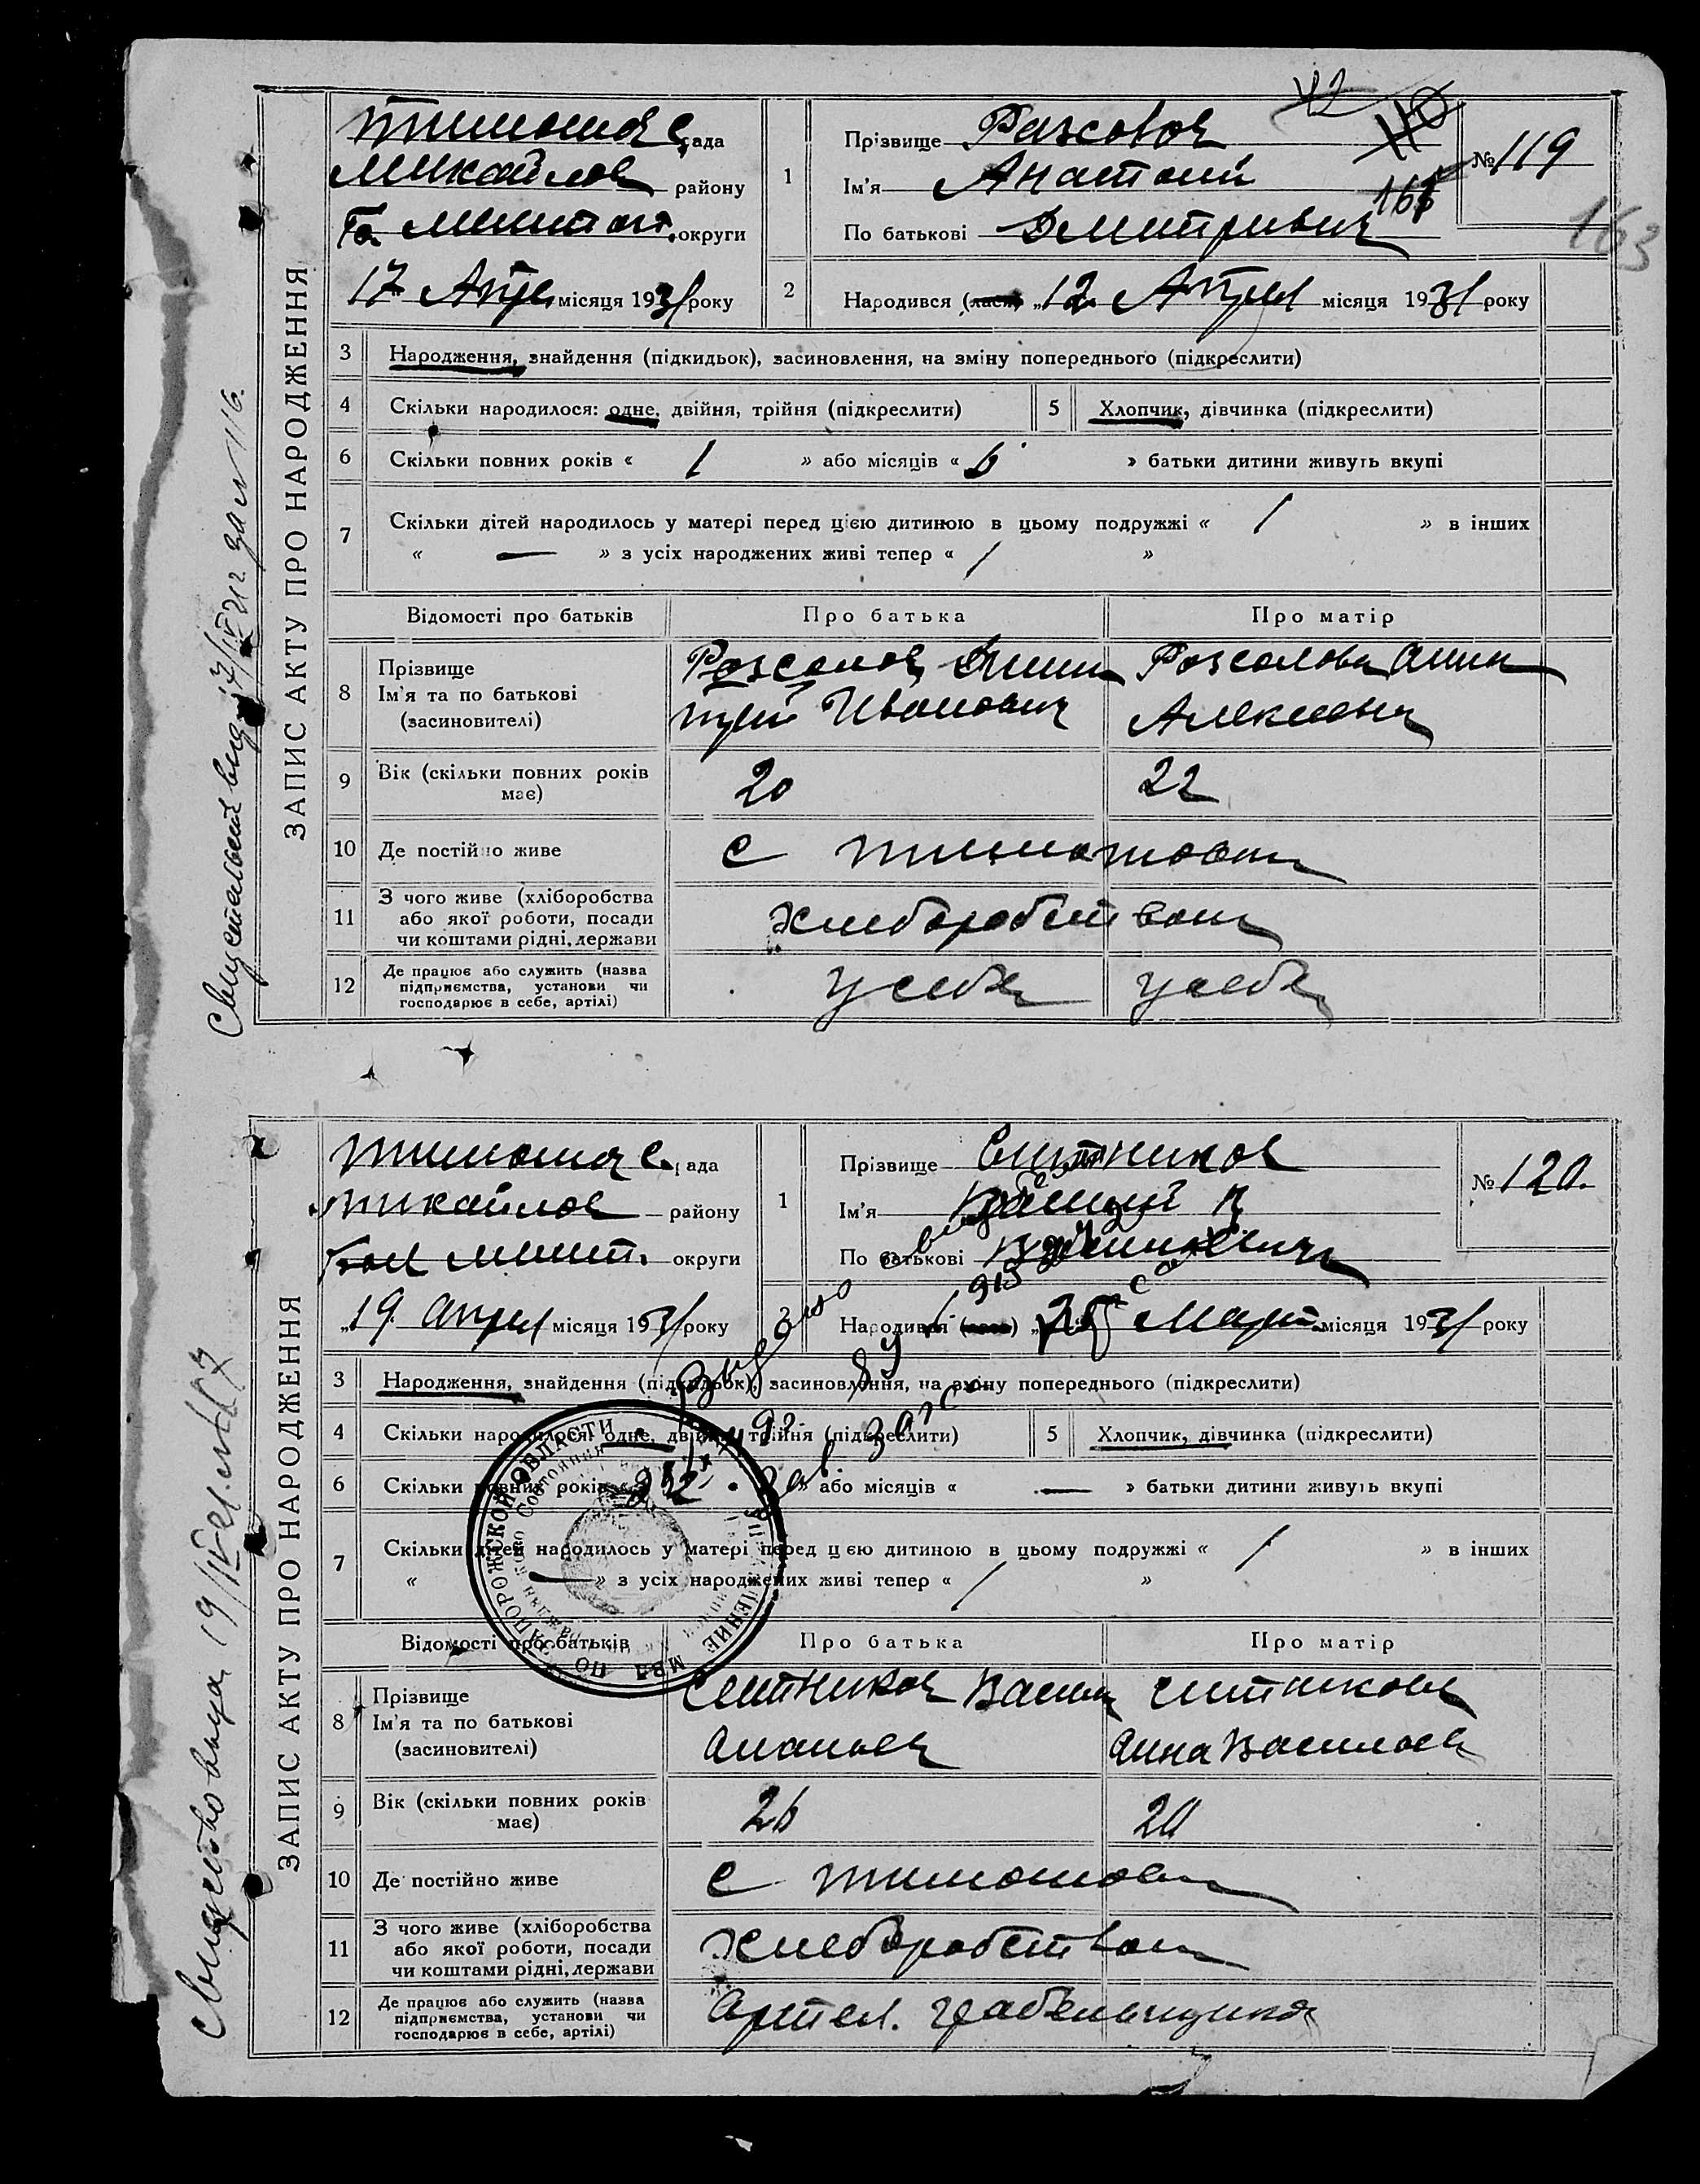 42
110
165
163
ЗАПИС АКТУ ПРО НАРОДЖЕННЯ
Тимошов с рада
Михайлов району
округи
17 Апре місяця 1931 року
1
Прізвище
Ім'я Анатолий
По батькові Дмитриевич
№ 119
2
Народився (лась) „12 Апрел місяця 1931 року
3 Народження, знайдення (підкидьок), засиновлення, на зміну попереднього (підкреслити)
4 Скільки народилося: одне, двійня, трійня (підкреслити)
5 Хлопчик, дівчинка (підкреслити)
6 Скільки повних років « 1 » або місяців « 6 » батьки дитини живуть вкупі
7 Скільки дітей народилось у матері перед цією дитиною в цьому подружжі « 1 » в інших
« — » з усіх народжених живі тепер « 1 »
Відомості про батьків Про батька Про матір
8 Прізвище
Ім'я та по батькові
(засновителі)
Дмитрий Иванович
Анна
Алексеевн
9 Вік (скільки повних років має) 20 22
10 Де постійно живе с Тимошовки
11 З чого живе (хліборобства або якої роботи, посади чи коштами рідні, держави Хлеборобством
12 Де працює або служить (назва підприємства, установи чи господарює в себе, артілі) у себя у себя
ЗАПИС АКТУ ПРО НАРОДЖЕННЯ
Тимошов с. рада
Михайлов району
округи
„19 Апрел місяця 1931 року
1
Прізвище Ситников
Ім'я
По батькові
№ 120.
Народився (лась) Март місяця 1931 року
3 Народження, знайдення (підкидьок), засиновлення, на зміну попереднього (підкреслити)
4 Скільки народилося: одне, двійня, трійня (підкреслити)
5 Хлопчик, дівчинка (підкреслити)
6 Скільки повних років « » або місяців « — » батьки дитини живуть вкупі
7 Скільки дітей народилось у матері перед цією дитиною в цьому подружжі « 1 » в інших
« — » з усіх народжених живі тепер « 1 »
ЗАПОРОЖСКОЙ ОБЛАСТИ
УПРАВЛЕНИЕ МВД ПО
Відомості про батьків Про батька Про матір
8 Прізвище
Ім'я та по батькові
(засиновителі)
Ситников Васил
Ананьев
Ситникова
Анна Васильев
9 Вік (скільки повних років має) 26 20
10 Де постійно живе с Тимошовки
11 З чого живе (хліборобства або якої роботи, посади чи коштами рідні, держави Хлеборобством
12 Де працює або служить (назва підприємства, установи чи господарює в себе, артілі) Артел.